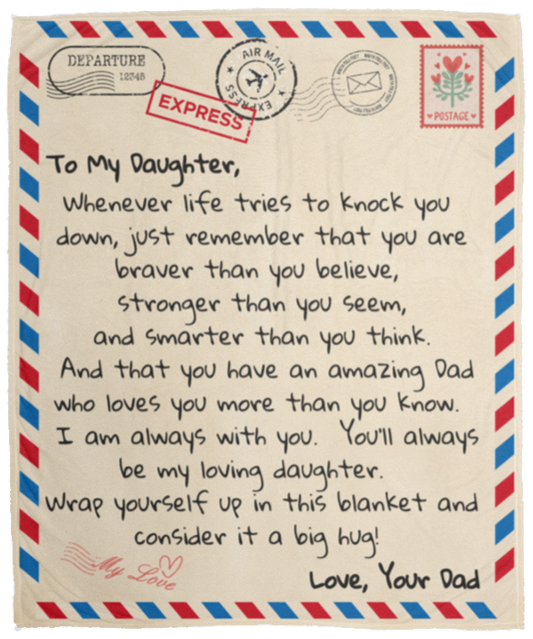 DEPARTURE
12345
AIR MAIL
EXPRESS
EXPRESS
POSTAGE
To My Daughter,
Whenever life tries to knock you
down, just remember that you are
braver than you believe,
stronger than you seem,
and smarter than you think.
And that you have an amazing Dad
who loves you more than you know.
I am always with you. You'll always
be my loving daughter.
Wrap yourself up in this blanket and
consider it a big hug!
My Love
Love, Your Dad